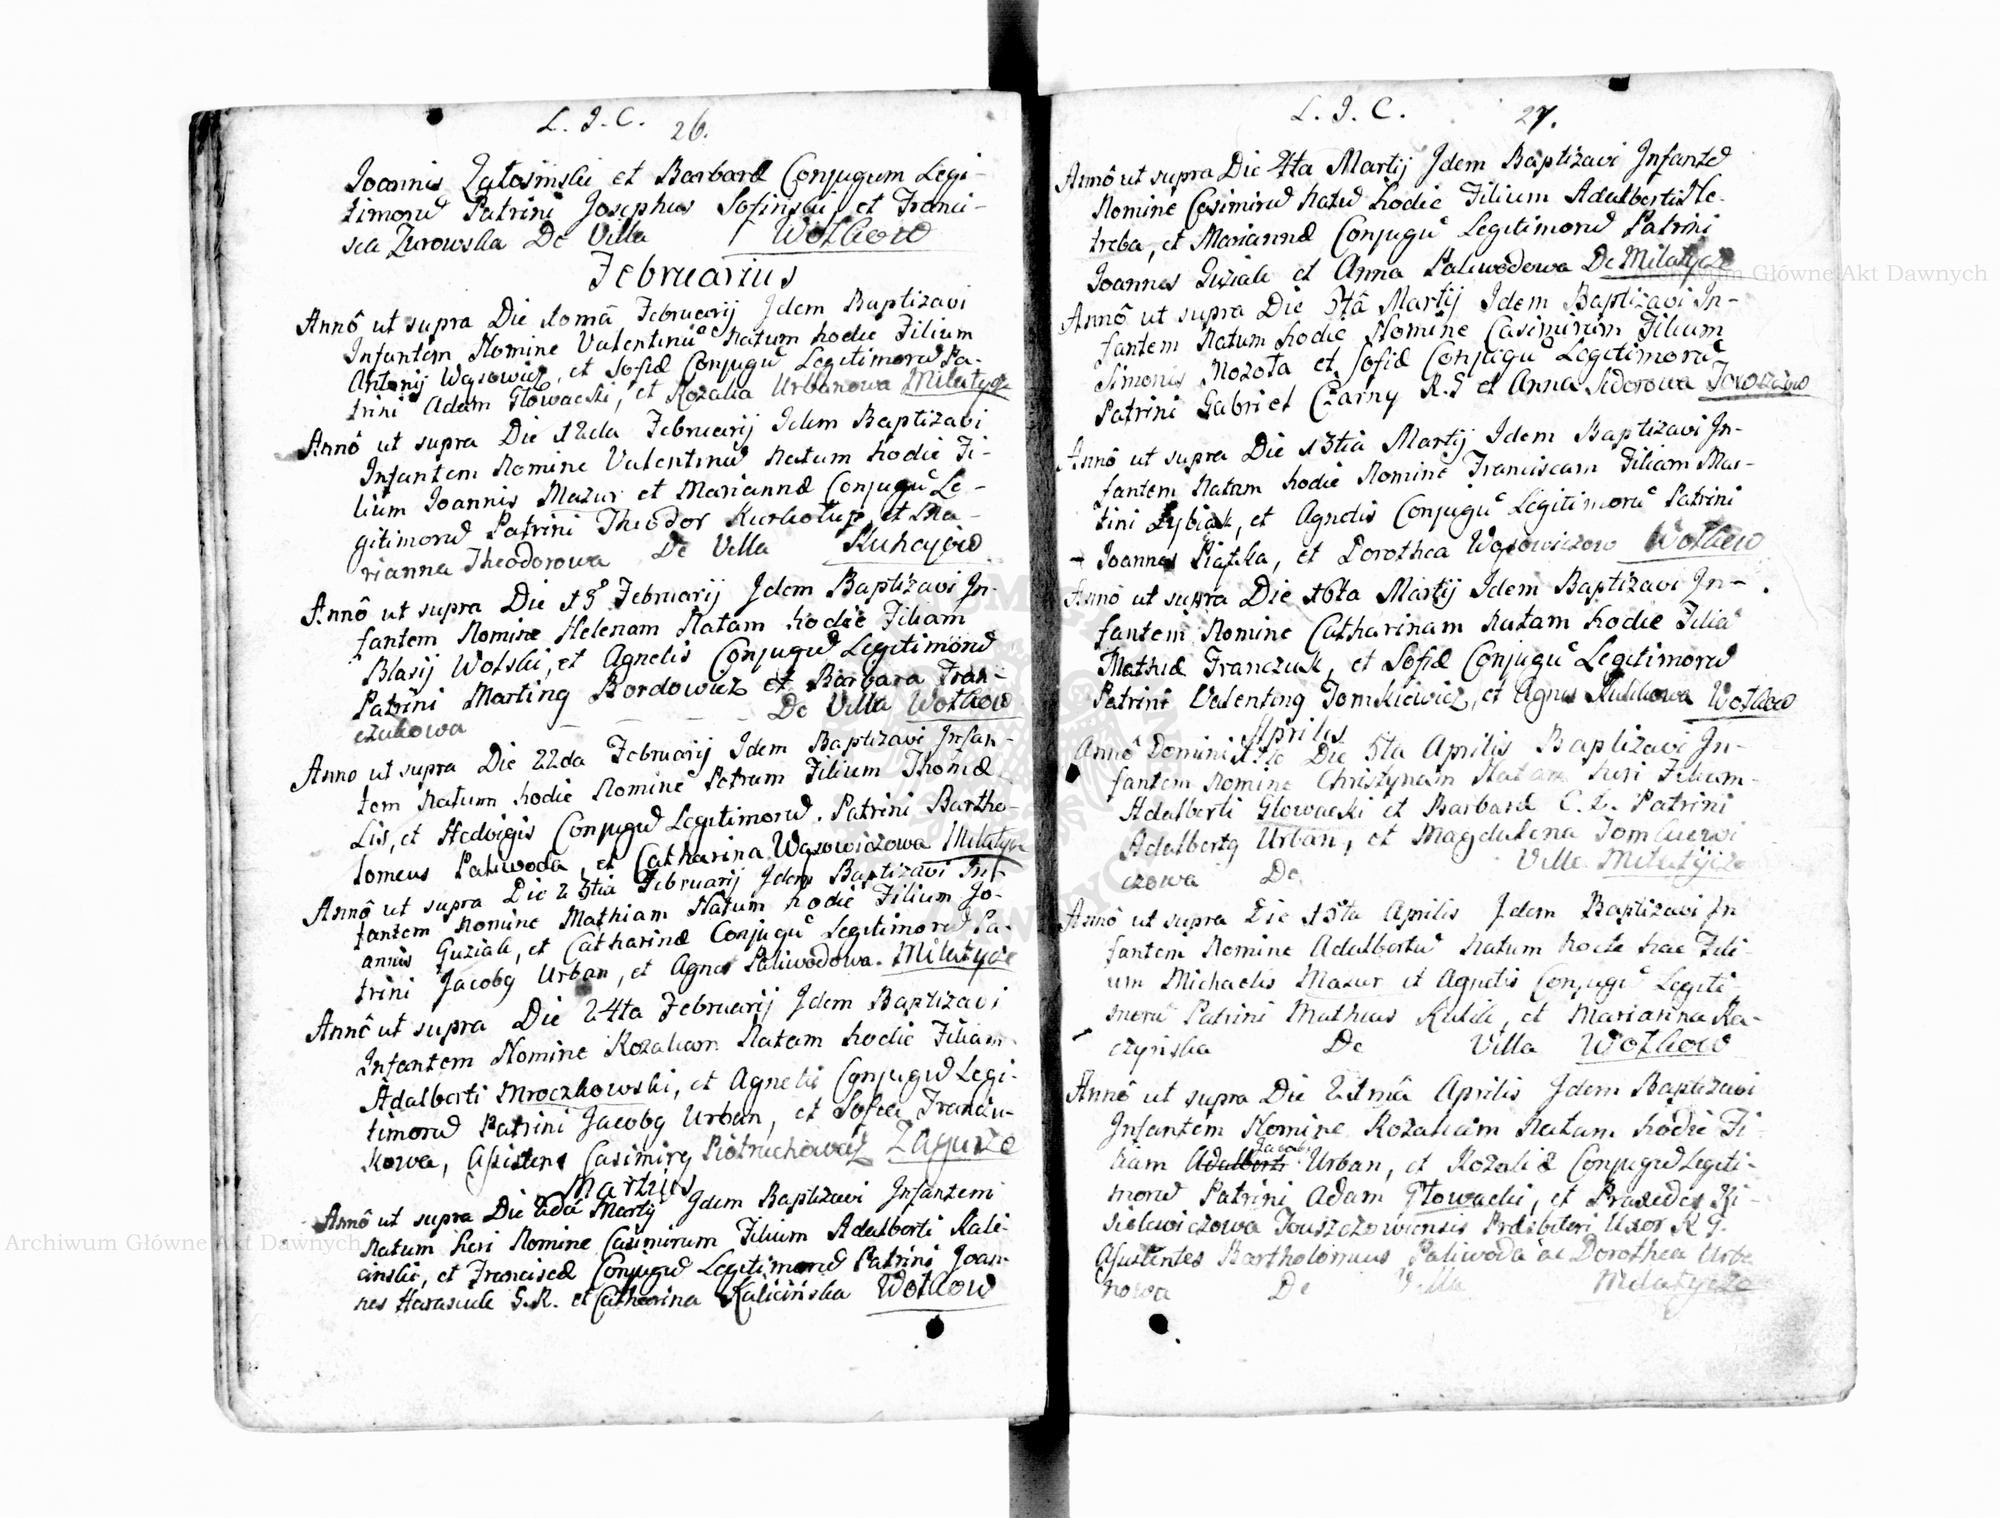 L. J. C. 26.
Joannis Zatosinski et Barbaræ Conjugum Legi-
timorũ Patrini Josephus Sosinski, et Franci-
sca Zurowska De Villa Wołkow
Februarius
Annô ut supra Die 10mâ Februarij Idem Baptizavi
Infantem Nomine Valentinũ Natum hodie Filium
Antonij Wąsowicz, et Sofiæ Conjugũ Legitimorũ Pa-
trini Adam Głowacki, et Rozalia Urbanowa Milatycze
Annô ut supra Die 12da Februarij Idem Baptizavi
Infantem Nomine Valentinũ Natum hodie Fi-
lium Joannis Mazur et Mariannæ Conjugũ Le-
gitimorũ Patrini Theodor et Ma-
rianna Theodorowa De Villa Kuhajow
Annô ut supra Die 13 Februarij Idem Baptizavi In-
fantem Nomine Helenam Natam hodie Filiam
Blasij Wolski, et Agnetis Conjugũ Legitimorũ
Patrini Martinq Bordowicz et Barbara Fran-
czukowa De Villa Wołkow
Anno ut supra Die 22da Februarij Idem Baptizavi Infan-
tem Natum hodie Nomine Petrum Filium Thomæ
Lis, et Hedvigis Conjugũ Legitimorũ. Patrini Bartho-
lomeus Paliwoda, et Catharina Wąsowiczowa Milatycze
Annô ut supra Die 23tia Februarij Idem Baptizavi In-
fantem Nomine Mathiam Natum hodie Filium Jo-
annis Guziak, et Catharinæ Conjugũ Legitimorũ Pa-
trini Jacobq Urban, et Agnes Paliwodowa. Milatycze
Annô ut supra Die 24ta Februarij Idem Baptizavi
Infantem Nomine Rozaliam Natam hodie Filiam
Adalberti Mroczkowski, et Agnetis Conjugũ Legi-
timorũ Patrini Jacobq Urban, et Sofia Franczu-
kowa, Assistens Casimirq Piotruchowicz Zagurze
Martius
Annô ut supra Die 2da Martij Idem Baptizavi Infantem
Natum heri Nomine Casimirum Filium Adalberti Kali-
cinski, et Franciscæ Conjugũ Legitimorũ Patrini Joan-
nes Harasiuk G.R. et Catharina Kalicińska Wołkow
L. J. C. 27.
Annô ut supra Die 4ta Martij Idem Baptizavi Infantẽ
Nomine Casimirũ Natũ hodie Filium Adalberti Ne-
treba, et Mariannæ Conjugũ Legitimorũ Patrini
Joannes Guziak et Anna Paliwodowa De Milatycze
Annô ut supra Die 5tâ Martij Idem Baptizavi In-
fantem Natum hodie Nomine Casimirum Filium
Simonis Mozota et Sofiæ Conjugũ Legitimorũ
Patrini Gabriel Czarny R.G et Anna Sidorowa
Annô ut supra Die 13tia Martij Idem Baptizavi In-
fantem Natam hodie Nomine Franciscam Filiam Mar-
tini Zybiak, et Agnetis Conjugũ Legitimorũ Patrini
Joannes Piątka, et Dorothea Wąsowiczow Wołkow
Annô ut supra Die 16ta Martij Idem Baptizavi In-
fantem Nomine Catharinam Natam hodie Filiã
Mathiæ Franczuk, et Sofiæ Conjugũ Legitimorũ
Patrini Valentinq Tomkiewicz, et Agnes Kulikowa Wołkow
Aprilis
Annô Domini Die 5ta Aprilis Baptizavi In-
fantem Nomine Christynam Natam heri Filiam
Adalberti Glowacki et Barbaræ C. L. Patrini
Adalbertq Urban, et Magdalena Tomkiewi
czowa De Villa Milatijcze
Annô ut supra Die 15ta Aprilis Idem Baptizavi In
fantem Nomine Adalbertũ Natum nocte hac Fili-
um Michaelis Mazur et Agnetis Conjugũ Legiti-
morũ Patrini Mathias Kulik, et Marianna Ka-
czyńska De Villa Wołkow
Annô ut supra Die 21mâ Aprilis Idem Baptizavi
Infantem Nomine Rozaliam Natam hodie Fi-
liam Adalberti Jacobi Urban, et Rozaliæ Conjugũ Legiti-
morũ Patrini Adam Głowacki, et Praxedes Ki-
sielewiczowa Touszczowiensis Præsbiteri Uxor R G.
Assistentes Bartholomeus Paliwoda ac Dorothea Urba
nowa De Villa Milatycze
Archiwum Główne Akt Dawnych
Archiwum Główne Akt Dawnych